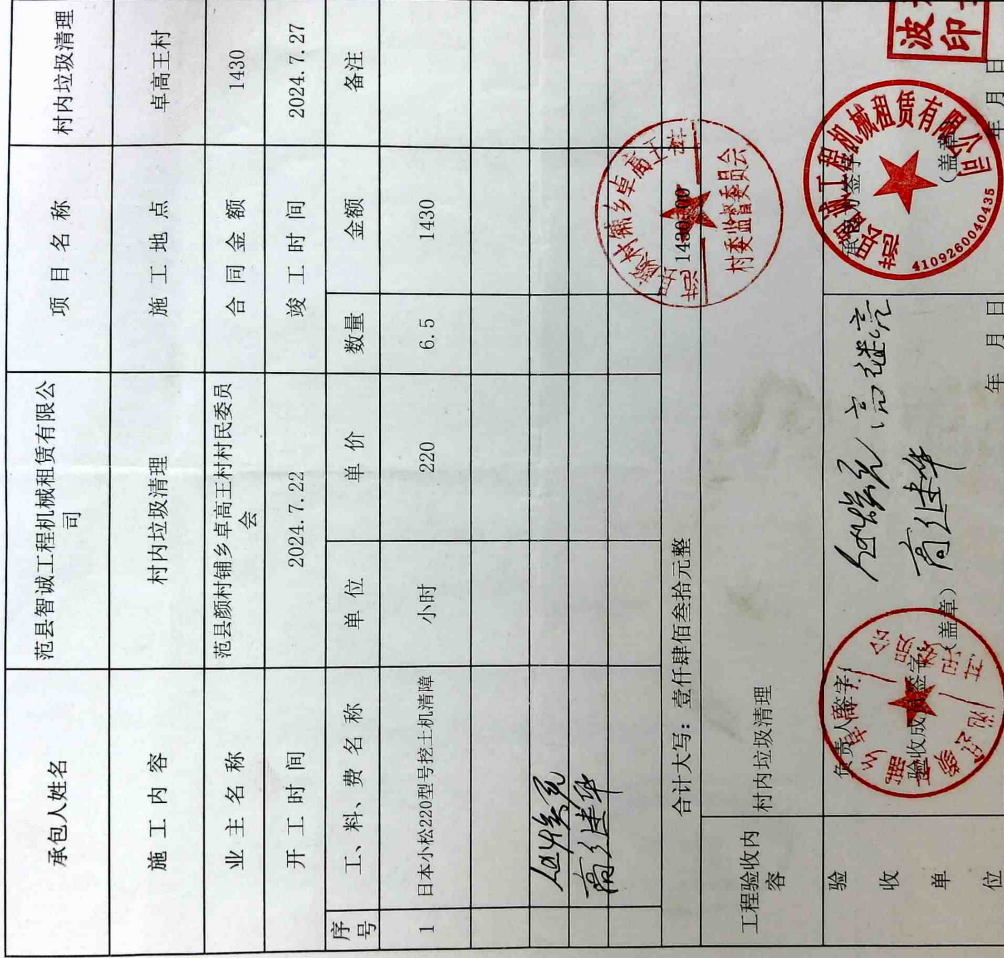 承包人姓名 范县智诚工程机械租赁有限公司 项目名称 村内垃圾清理
施工内容 村内垃圾清理 施工地点 卓高王村
业主名称 范县颜村铺乡卓高王村村民委员会 合同金额 1430
开工时间 2024.7.22 竣工时间 2024.7.27
序号 工、料、费名称 单位 单价 数量 金额 备注
1 日本小松220型号挖土机清障 小时 220 6.5 1430
高建华
合计大写：壹仟肆佰叁拾元整
村委监督委员会
工程验收内容 村内垃圾清理
验收单位
负责人签字：
验收成员签字：
高建华
（盖章）
年 月 日
工程机械租赁有限公司
4109260040435
（盖章）
年 月 日
波
印